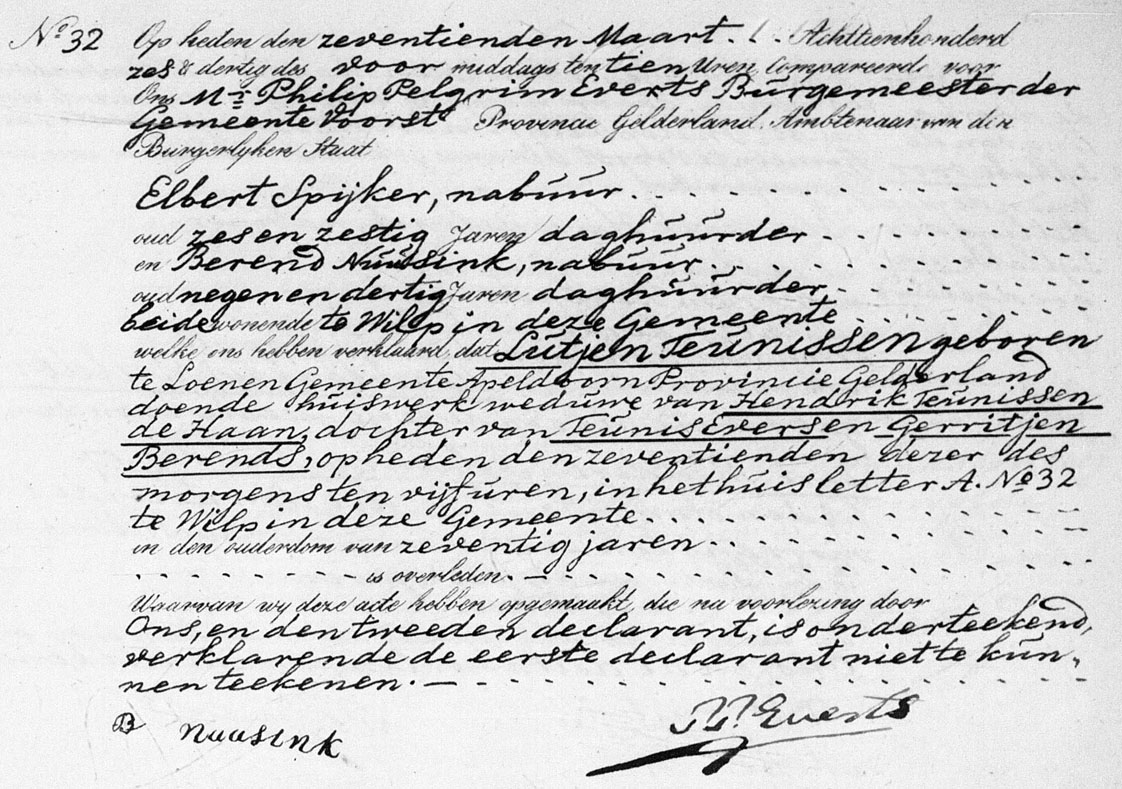 No 32 Op heden den zeventienden Maart. Achttienhonderd
zes & dertig des voor middags ten tien Uren, Compareerde voor
Ons Mr Philip Pelgrim Everts Burgemeester der
Gemeente Voorst Provincie Gelderland. Ambtenaar van den
Burgerlyken Staat
Elbert Spijker, nabuur
oud zes en zestig Jaren daghuurder
en Berend Nuusink, nabuur
oud negen en dertig Jaren daghuurder
beide wonende te Wilp in deze Gemeente
welke ons hebben verklaard, dat Lutjen Teunissen geboren
te Loenen Gemeente Apeldoorn Provincie Gelderland
doende huiswerk weduwe van Hendrik Teunissen
de Haan, dochter van Teunis Evers en Gerritjen
Berends, op heden den zeventienden dezer des
morgens ten vijf uren, in het huis letter A. No 32
te Wilp in deze Gemeente
in den ouderdom van zeventig jaren
is overleden. —
Waarvan wy deze acte hebben opgemaakt, die na voorlezing door
Ons, en den tweeden declarant, is onderteekend,
verklarende de eerste declarant niet te kun-
nen teekenen. —
B nuusink Everts